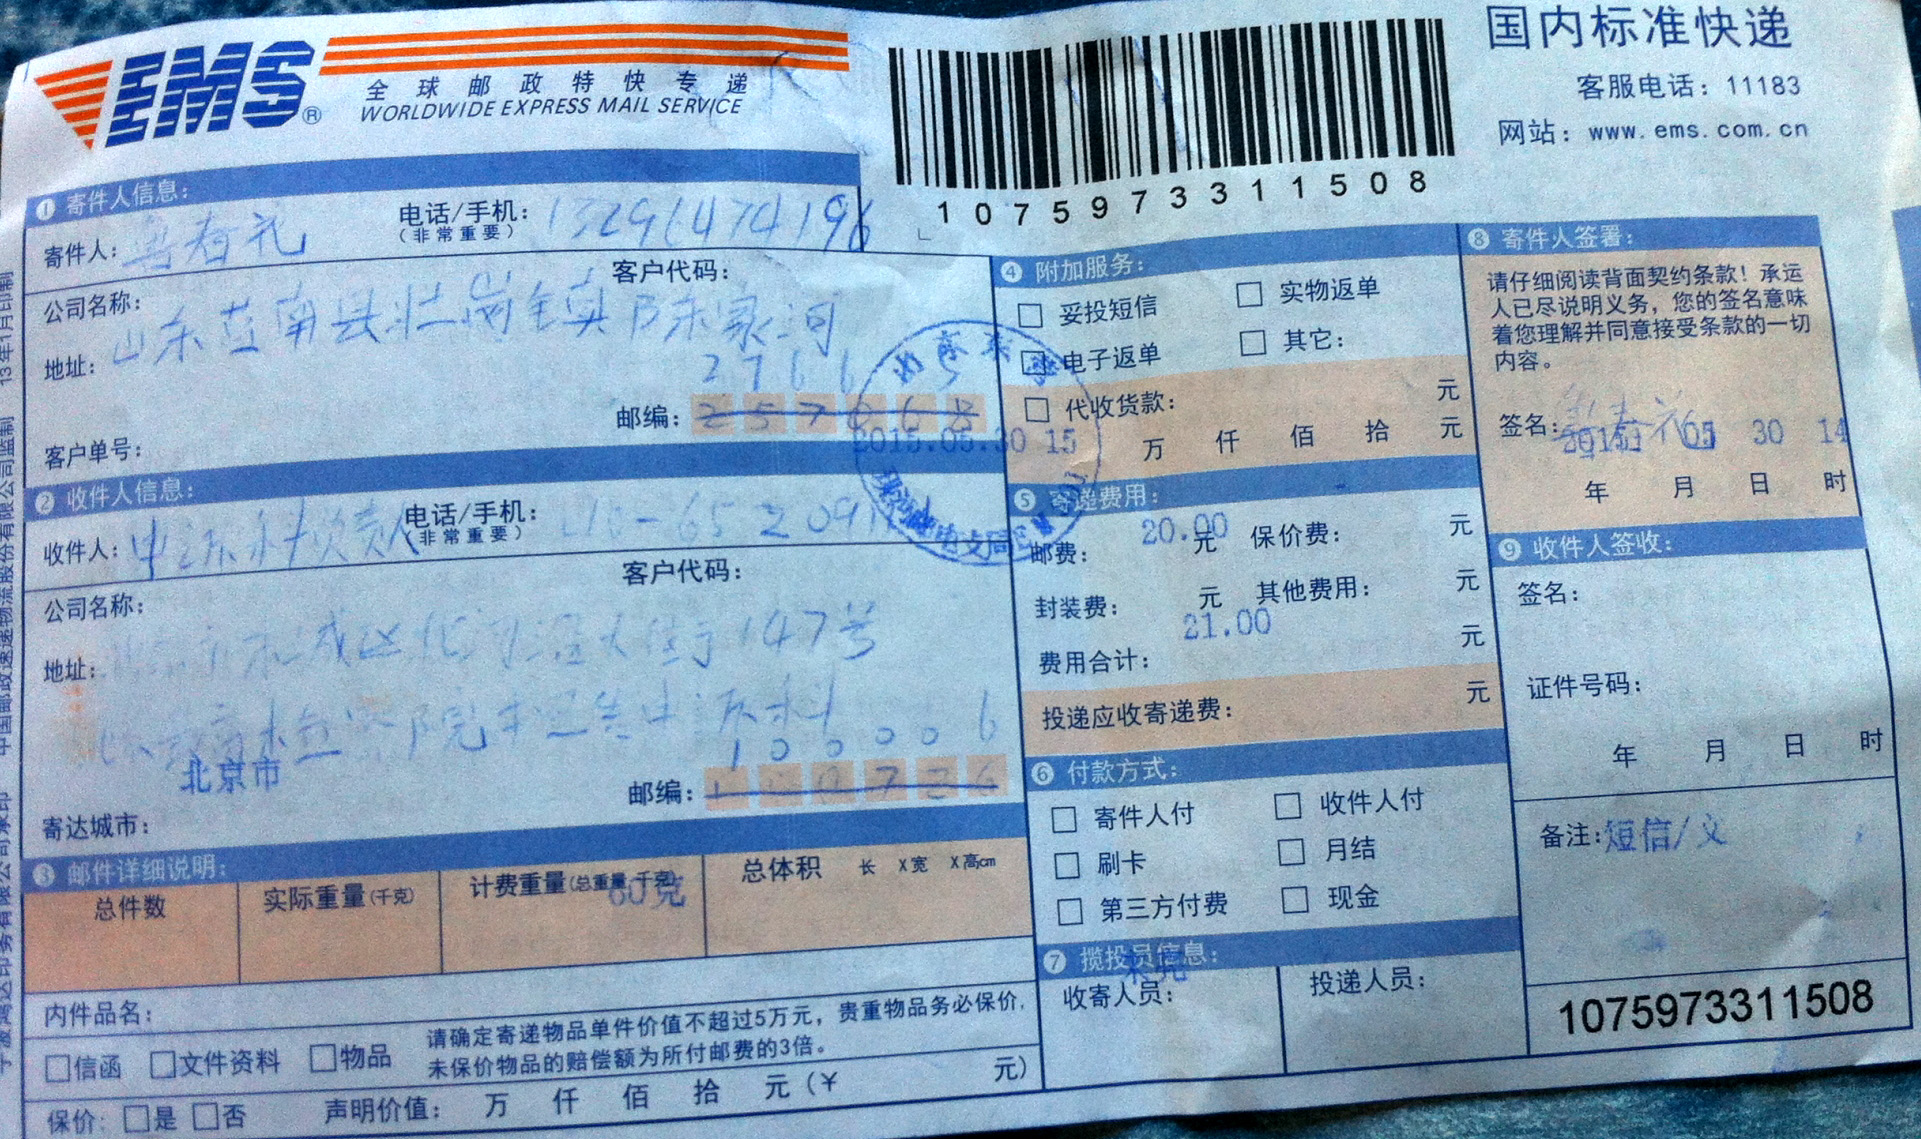 EMS®
全球邮政特快专递
WORLDWIDE EXPRESS MAIL SERVICE
1075973311508
国内标准快递
客服电话：11183
网站：www.ems.com.cn
❶ 寄件人信息：
寄件人：
电话/手机：
（非常重要）
客户代码：
公司名称：
地址：山东莒南县壮岗镇陈家河
2766 5
邮编：
客户单号：
2015.05.30 15
❷ 收件人信息：
收件人：
电话/手机：
（非常重要）
客户代码：
公司名称：
地址：147号
100006
北京市
邮编：
寄达城市：
❸ 邮件详细说明：
总件数
实际重量（千克）
计费重量（总重量 千克）
60克
总体积 长 X宽 X高cm
内件品名：
信函 文件资料 物品
请确定寄递物品单件价值不超过5万元，贵重物品务必保价，
未保价物品的赔偿额为所付邮费的3倍。
保价：是 否
声明价值： 万 仟 佰 拾 元（￥ 元）
❹ 附加服务：
妥投短信 实物返单
电子返单 其它：
代收货款： 元
万 仟 佰 拾 元
❺ 寄递费用：
邮费：20.00元 保价费： 元
封装费： 元 其他费用： 元
21.00
费用合计： 元
投递应收寄递费： 元
❻ 付款方式：
寄件人付 收件人付
刷卡 月结
第三方付费 现金
❼ 揽投员信息：
收寄人员：
投递人员：
❽ 寄件人签署：
请仔细阅读背面契约条款！承运
人已尽说明义务，您的签名意味
着您理解并同意接受条款的一切
内容。
签名：
30 14
年 月 日 时
❾ 收件人签收：
签名：
证件号码：
年 月 日 时
备注：短信/义
1075973311508